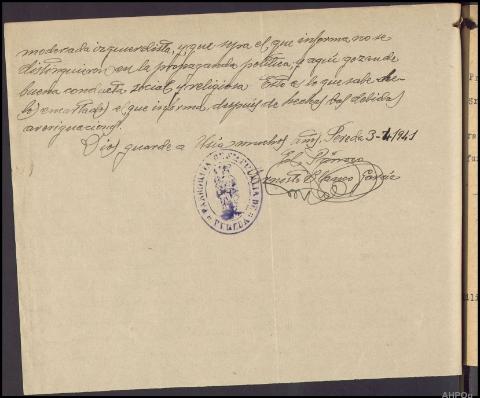 moderada izquierdista, y que sepa el que informa, no se
distinguieron en la propaganda política, y aquí gozan de
buena conducta social y religiosa Esto es lo que sabe de
los encartados el que informa después de hechas las debidas
averiguaciones.
Dios guarde a muchos años. Pereda 3-1941
El Párroco
Ernesto García
PARROQUIA DE
PEREDA
AHPO